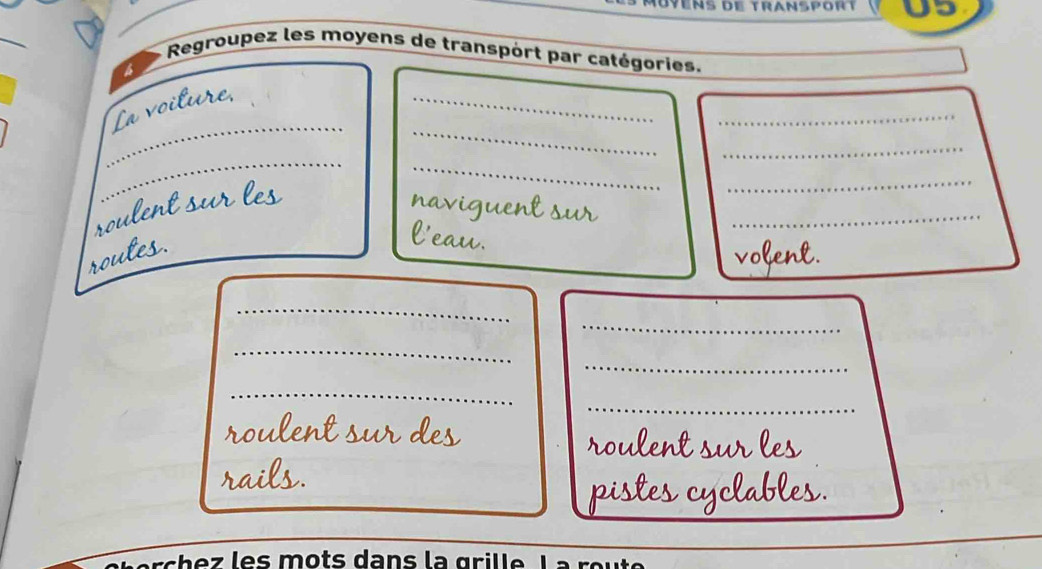 MOYENS DE TRANSPORT 05
4 Regroupez les moyens de transport par catégories.
La voiture,
roulent sur les
routes.
naviguent sur
l'eau.
volent.
roulent sur des
rails.
roulent sur les
pistes cyclables.
les mots dans la grille. La route